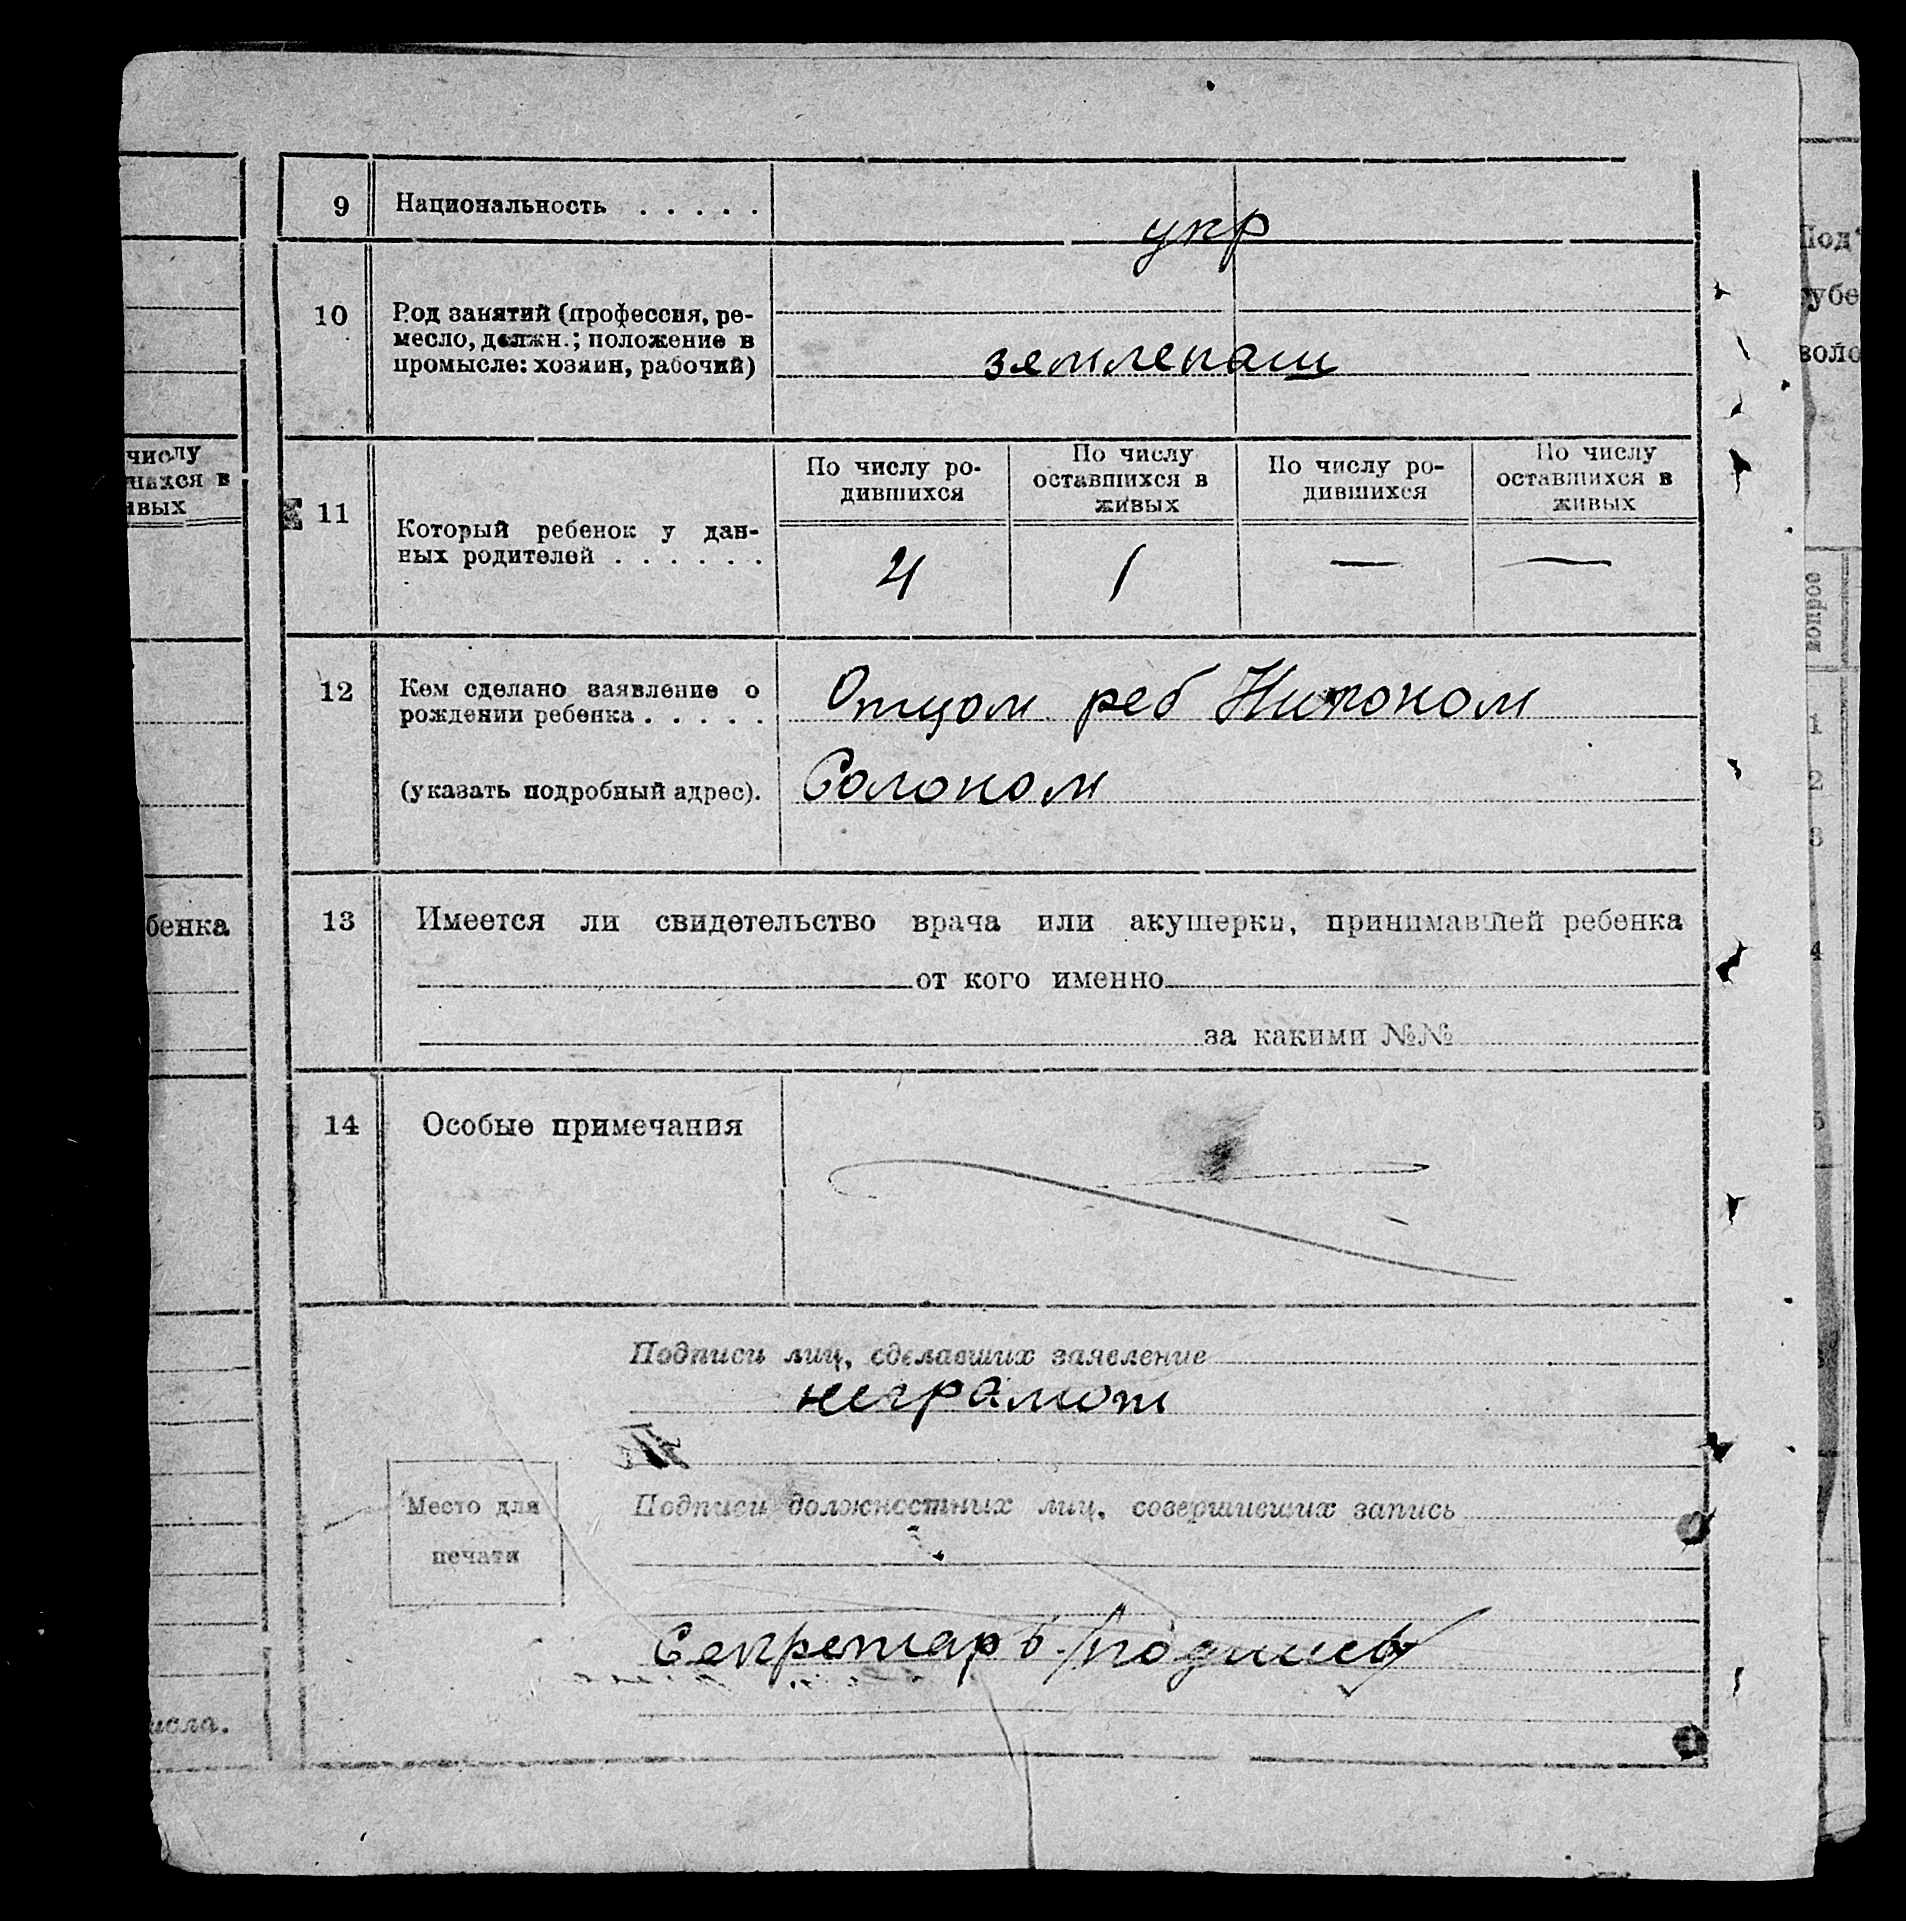 9 Национальность . . . . .
укр
10 Род занятий (профессия, ре-
месло, должн.; положение в
промысле: хозяин, рабочий)
землепаш
По числу ро-
дившихся
По числу
оставшихся в
живых
По числу ро-
дившихся
По числу
оставшихся в
живых
11 Который ребенок у дан-
ных родителей . . . . . .
4 1 — —
12 Кем сделано заявление о
рождении ребенка . . . . .
(указать подробный адрес).
Отцом реб Никоном
Солоном
13 Имеется ли свидетельство врача или акушерки, принимавшей ребенка
от кого именно
за какими №№
14 Особые примечания
Подписи лиц, сделавших заявление
неграмот
Место для
печати
Подписи должностных лиц, совершивших запись
Секретарь /подпись/
числу
шихся в
ивых
бенка
исла.
Под
губе
воло
вопрос
1
2
3
4
5